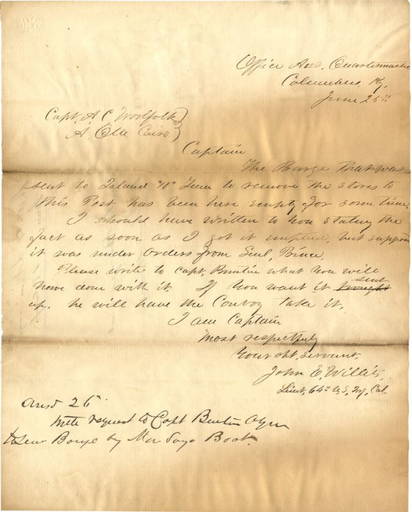 Office Ass. Quartermaster
Columbus Ky,
June 25th
Capt. A C Woolfolk)
A. Q.M. Cairo)
Captain
The Barge that was
sent to Island No Ten to remove the stores to
this Post has been here empty for some time.
I should have written to you stating the
fact as soon as I got it emptied, but supposed
it was under orders from Genl,
Please write to Capt. what you will
have done with it If you want it sent
up. he will have the Convoy take it.
I am Captain
Most respectfully
Your obt. servant,
John W. Willis,
Lieut, 64th U.S, Inf, Col.
Ansd 26th
with request to Capt
Barge by Boat.